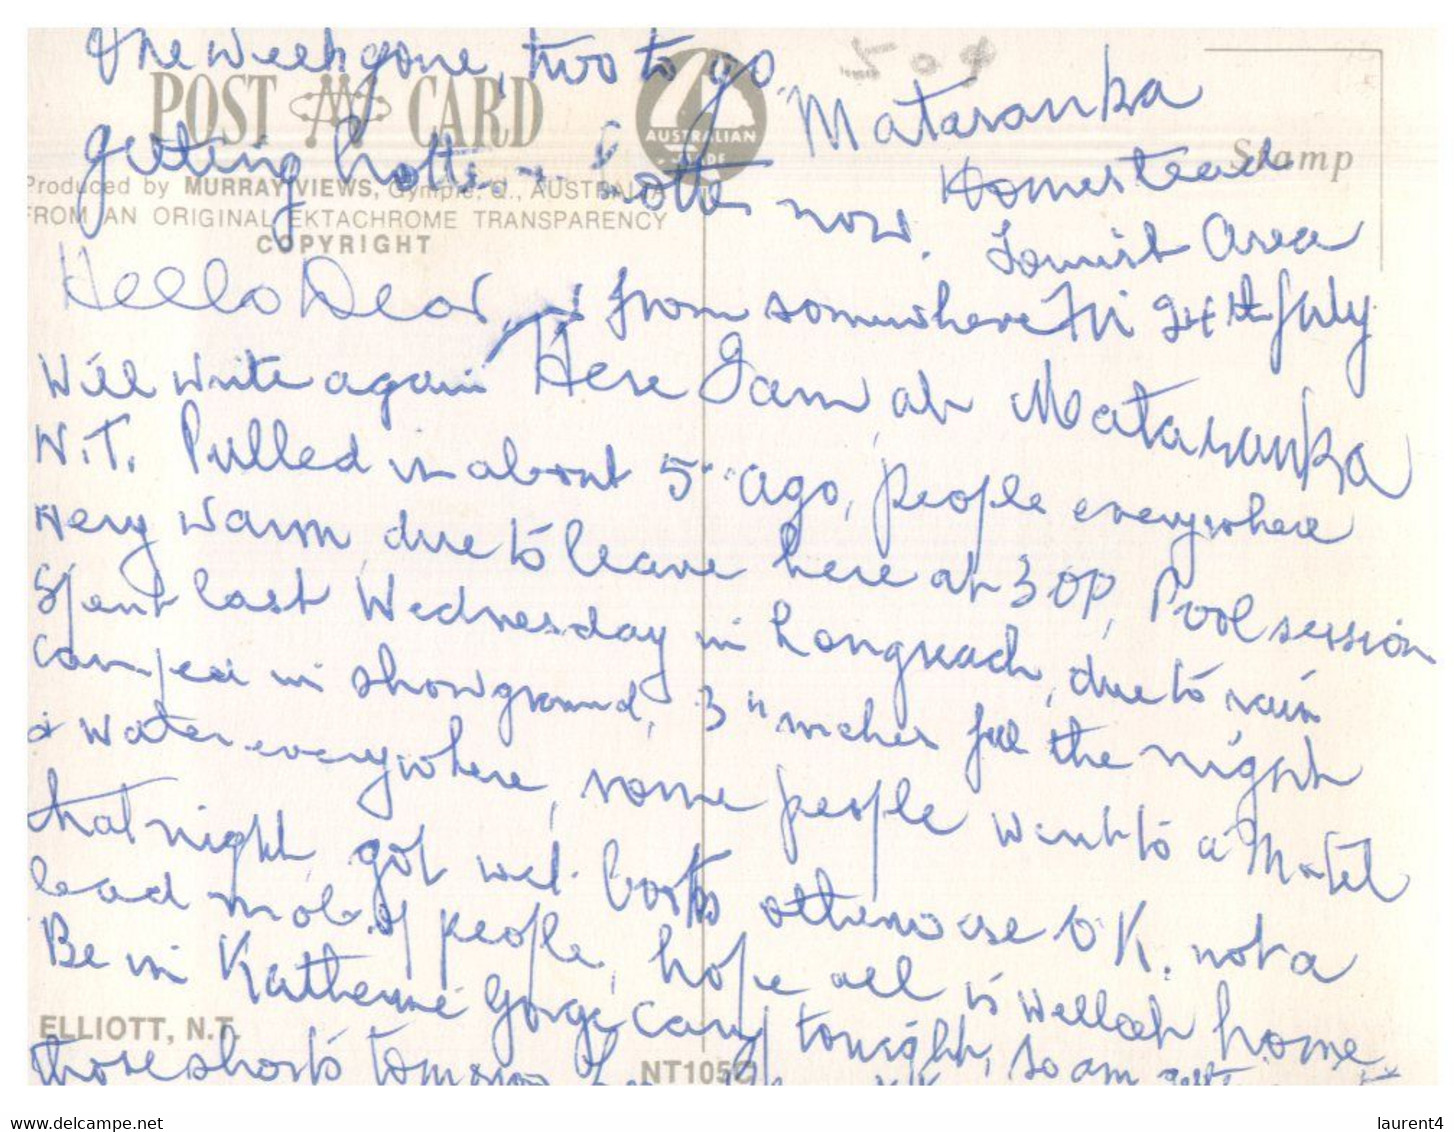 One week gone, two to go
50¢
POST CARD
AUSTRALIAN MADE
Stamp
getting hotter hotter now.
Produced by MURRAY VIEWS, Gympie, Q., AUSTRALIA
FROM AN ORIGINAL EKTACHROME TRANSPARENCY
COPYRIGHT
Mataranka
Homestead
Tourist Area
Fri 24th July
Hello Dear from somewhere
Will write again Here I am at Mataranka
N.T. Pulled in about 5" ago, people everywhere
very warm due to leave here at 3 0P, Pool session
Spent last Wednesday in Longreach, due to rain
Camped in showground, 3" inches fell the night
& water everywhere, some people went to a Motel
that night, got wet boots otherwise O.K. not a
bad mob of people, hope all is well at home
Be in Katherine Gorge Camp tonight, so am
those shorts
ELLIOTT, N.T.
NT105
www.delcampe.net
laurent4